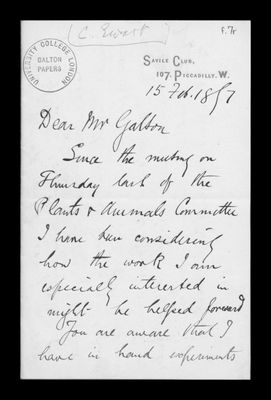 (C. Ewart)
f. 7r
UNIVERSITY COLLEGE LONDON
GALTON PAPERS
SAVILE CLUB,
107, PICCADILLY. W.
15 Feb. 1897
Dear Mr Galton
Since the meeting on
Thursday last of the
Plants & Animals Committee
I have been considering
how the work I am
especially interested in
might be helped forward
You are aware that I
have in hand experiments